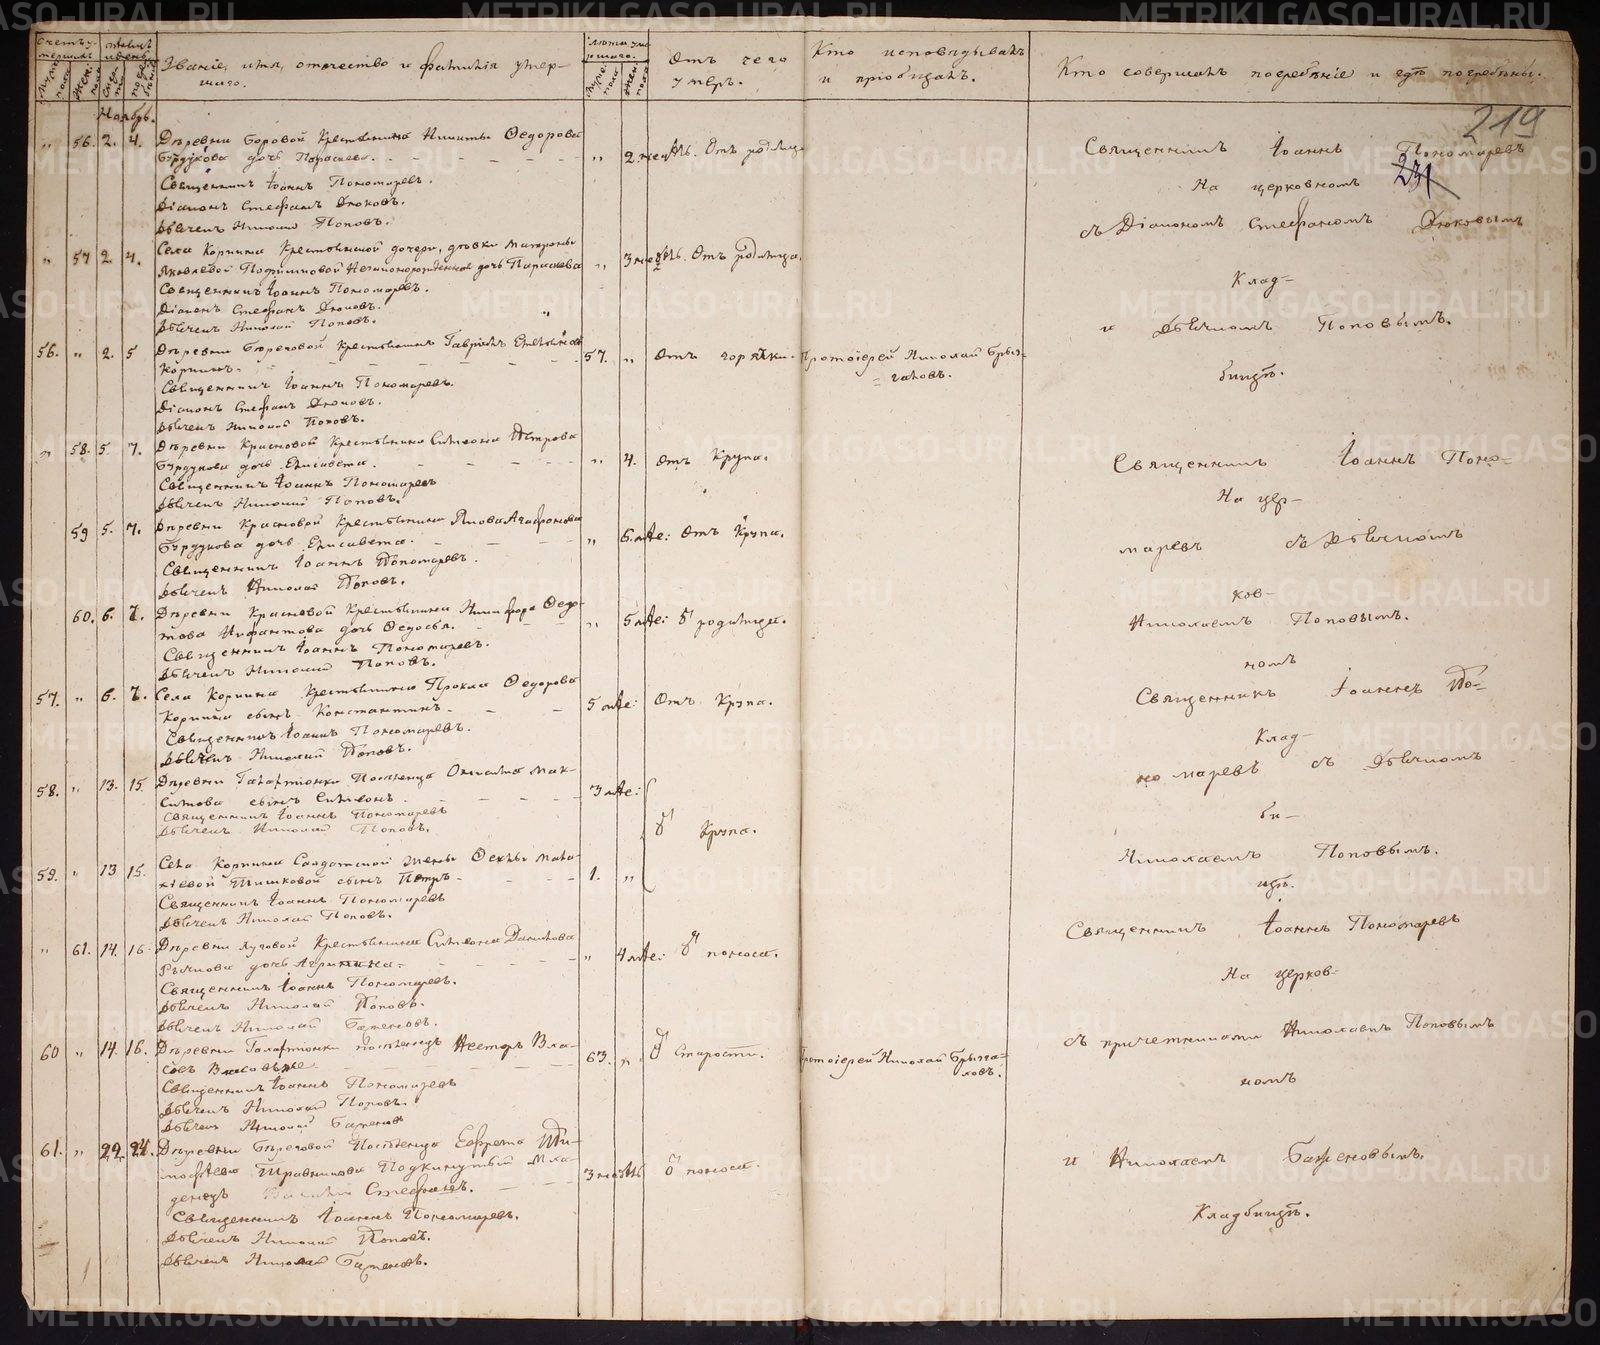 счетъ умершихъ
мужеска пола
женска пола
Мѣсяцъ и день
смерти
погребенія
Званіе, имя, отчество и фамилія умер-
шаго.
Лѣта умершаго.
Мужеска пола
Женска пола
Отъ чего
умеръ.
Кто исповѣдывалъ
и пріобщалъ.
Кто совершалъ погребеніе и гдѣ погребены.
219
231
Ноябрь.
„ 56. 2. 4. Деревни Боровой Крестьянина Никиты Ѳедорова
Бурдукова дочь Параскева. „ 2. нед. Отъ родимца
Священникъ Іоаннъ Пономаревъ.
Діаконъ Стефанъ Дюковъ.
Дьячекъ Николай Поповъ.
„ 57 2. 4. Села Коркина Крестьянской дочери, дѣвки Матроны
Яковлевой незаконорожденная дочь Параскева „ 3 нед. Отъ родимца.
Священникъ Іоаннъ Пономаревъ.
Діаконъ Стефанъ Дюковъ.
Дьячекъ Николай Поповъ.
56. „ 2. 5 Деревни Крестьянинъ Гавріилъ
Коркинъ. 57. „ Отъ горячки. Протоіерей Николай Брыз-
галовъ.
Священникъ Іоаннъ Пономаревъ.
Діаконъ Стефанъ Дюковъ.
Дьячекъ Николай Поповъ.
„ 58. 5. 7. Деревни Красновой Крестьянина Симеона Петрова
Бурдукова дочь Елисавета. „ 4. Отъ Крупа.
Священникъ Іоаннъ Пономаревъ
Дьячекъ Николай Поповъ.
59 5. 7. Деревни Красновой Крестьянина Якова Агафонова
Бурдукова дочь Елисавета. „ 6. мѣс: Отъ Крупа.
Священникъ Іоаннъ Пономаревъ.
Дьячекъ Николай Поповъ.
60. 6. 7. Деревни Красновой Крестьянина Никифора Ѳедо-
това дочь Ѳедосья. „ 5 мѣс: Ѿ родимца.
Священникъ Іоаннъ Пономаревъ.
Дьячекъ Николай Поповъ.
57. „ 6. 7. Села Коркина Крестьянина Прокла Ѳедорова
Коркина сынъ Константинъ. 5 мѣс: Отъ Крупа.
Священникъ Іоаннъ Пономаревъ.
Дьячекъ Николай Поповъ.
58. „ 13. 15. Деревни Галактіонки Поселенца Онисима Мак-
симова сынъ Симеонъ. 3 мѣс:
Священникъ Іоаннъ Пономаревъ
Дьячекъ Николай Поповъ.
Ѿ Крупа.
59. „ 13 15. Села Коркина Солдатской жены Ѳеклы Мала-
хіевой Тишковой сынъ Петръ 1. „
Священникъ Іоаннъ Пономаревъ
Дьячекъ Николай Поповъ.
„ 61. 14. 16. Деревни Луговой Крестьянина Симеона Данилова
дочь „ 4 мѣс: Ѿ поноса.
Священникъ Іоаннъ Пономаревъ.
Дьячекъ Николай Поповъ.
Дьячекъ Николай Баженовъ.
60 „ 14. 16. Деревни Галактіонки поселенецъ Несторъ Вла-
63. „ Ѿ Старости. Протоіерей Николай Брызга-
ловъ.
Священникъ Іоаннъ Пономаревъ
Дьячекъ Николай Поповъ.
Дьячекъ Николай Баженовъ
61. „ 22. 24. Деревни Поселенца Ефрема Ти-
моѳеева Травникова Подкинутый Мла-
денецъ 3 нед. Ѿ поноса.
Священникъ Іоаннъ Пономаревъ.
Дьячекъ Николай Поповъ.
Дьячекъ Николай Баженовъ.
Священникъ Іоаннъ Пономаревъ
На церковномъ
съ Діакономъ Стефаномъ Дюковымъ
Клад-
и Дьячкомъ Поповымъ.
бищѣ.
Священникъ Іоаннъ Поно-
На цер-
маревъ съ Дьячкомъ
ков-
Николаемъ Поповымъ.
номъ
Священникъ Іоаннъ По-
Клад-
номаревъ съ Дьячкомъ
би-
Николаемъ Поповымъ.
щѣ.
Священникъ Іоаннъ Пономаревъ
На церков-
съ причетниками Николаемъ Поповымъ
номъ
и Николаемъ Баженовымъ.
Кладбищѣ.
METRIKI.GASO-URAL.RU